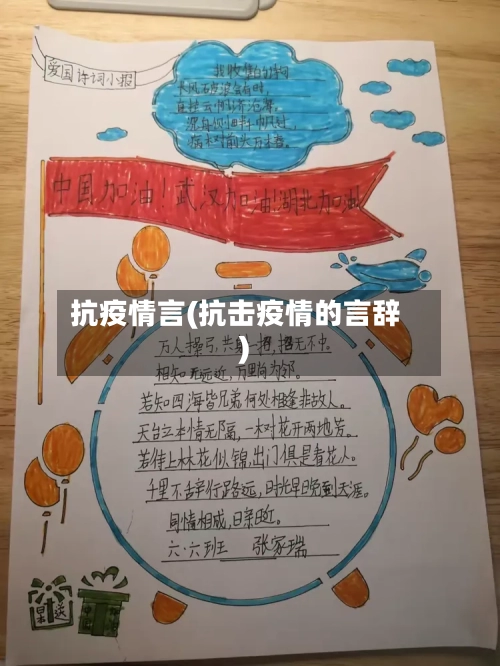 爱国诗词小报
我收集的诗句
长风破浪会有时,
直挂云帆济沧海。
沉舟侧畔千帆过,
病树前头万木春。
中国加油!武汉加油!湖北加油
抗疫情言(抗击疫情的言辞
)
万人操弓,共射一招,招无不中。
相知无远近,万里尚为邻。
若知四海皆兄弟何处相逢非故人。
天台立本情无隔,一树花开两地芳。
若待上林花似锦,出门俱是看花人。
千里不辞行路远,时光早晚到天涯。
同情相成,日亲近。
六.六班 张家瑞